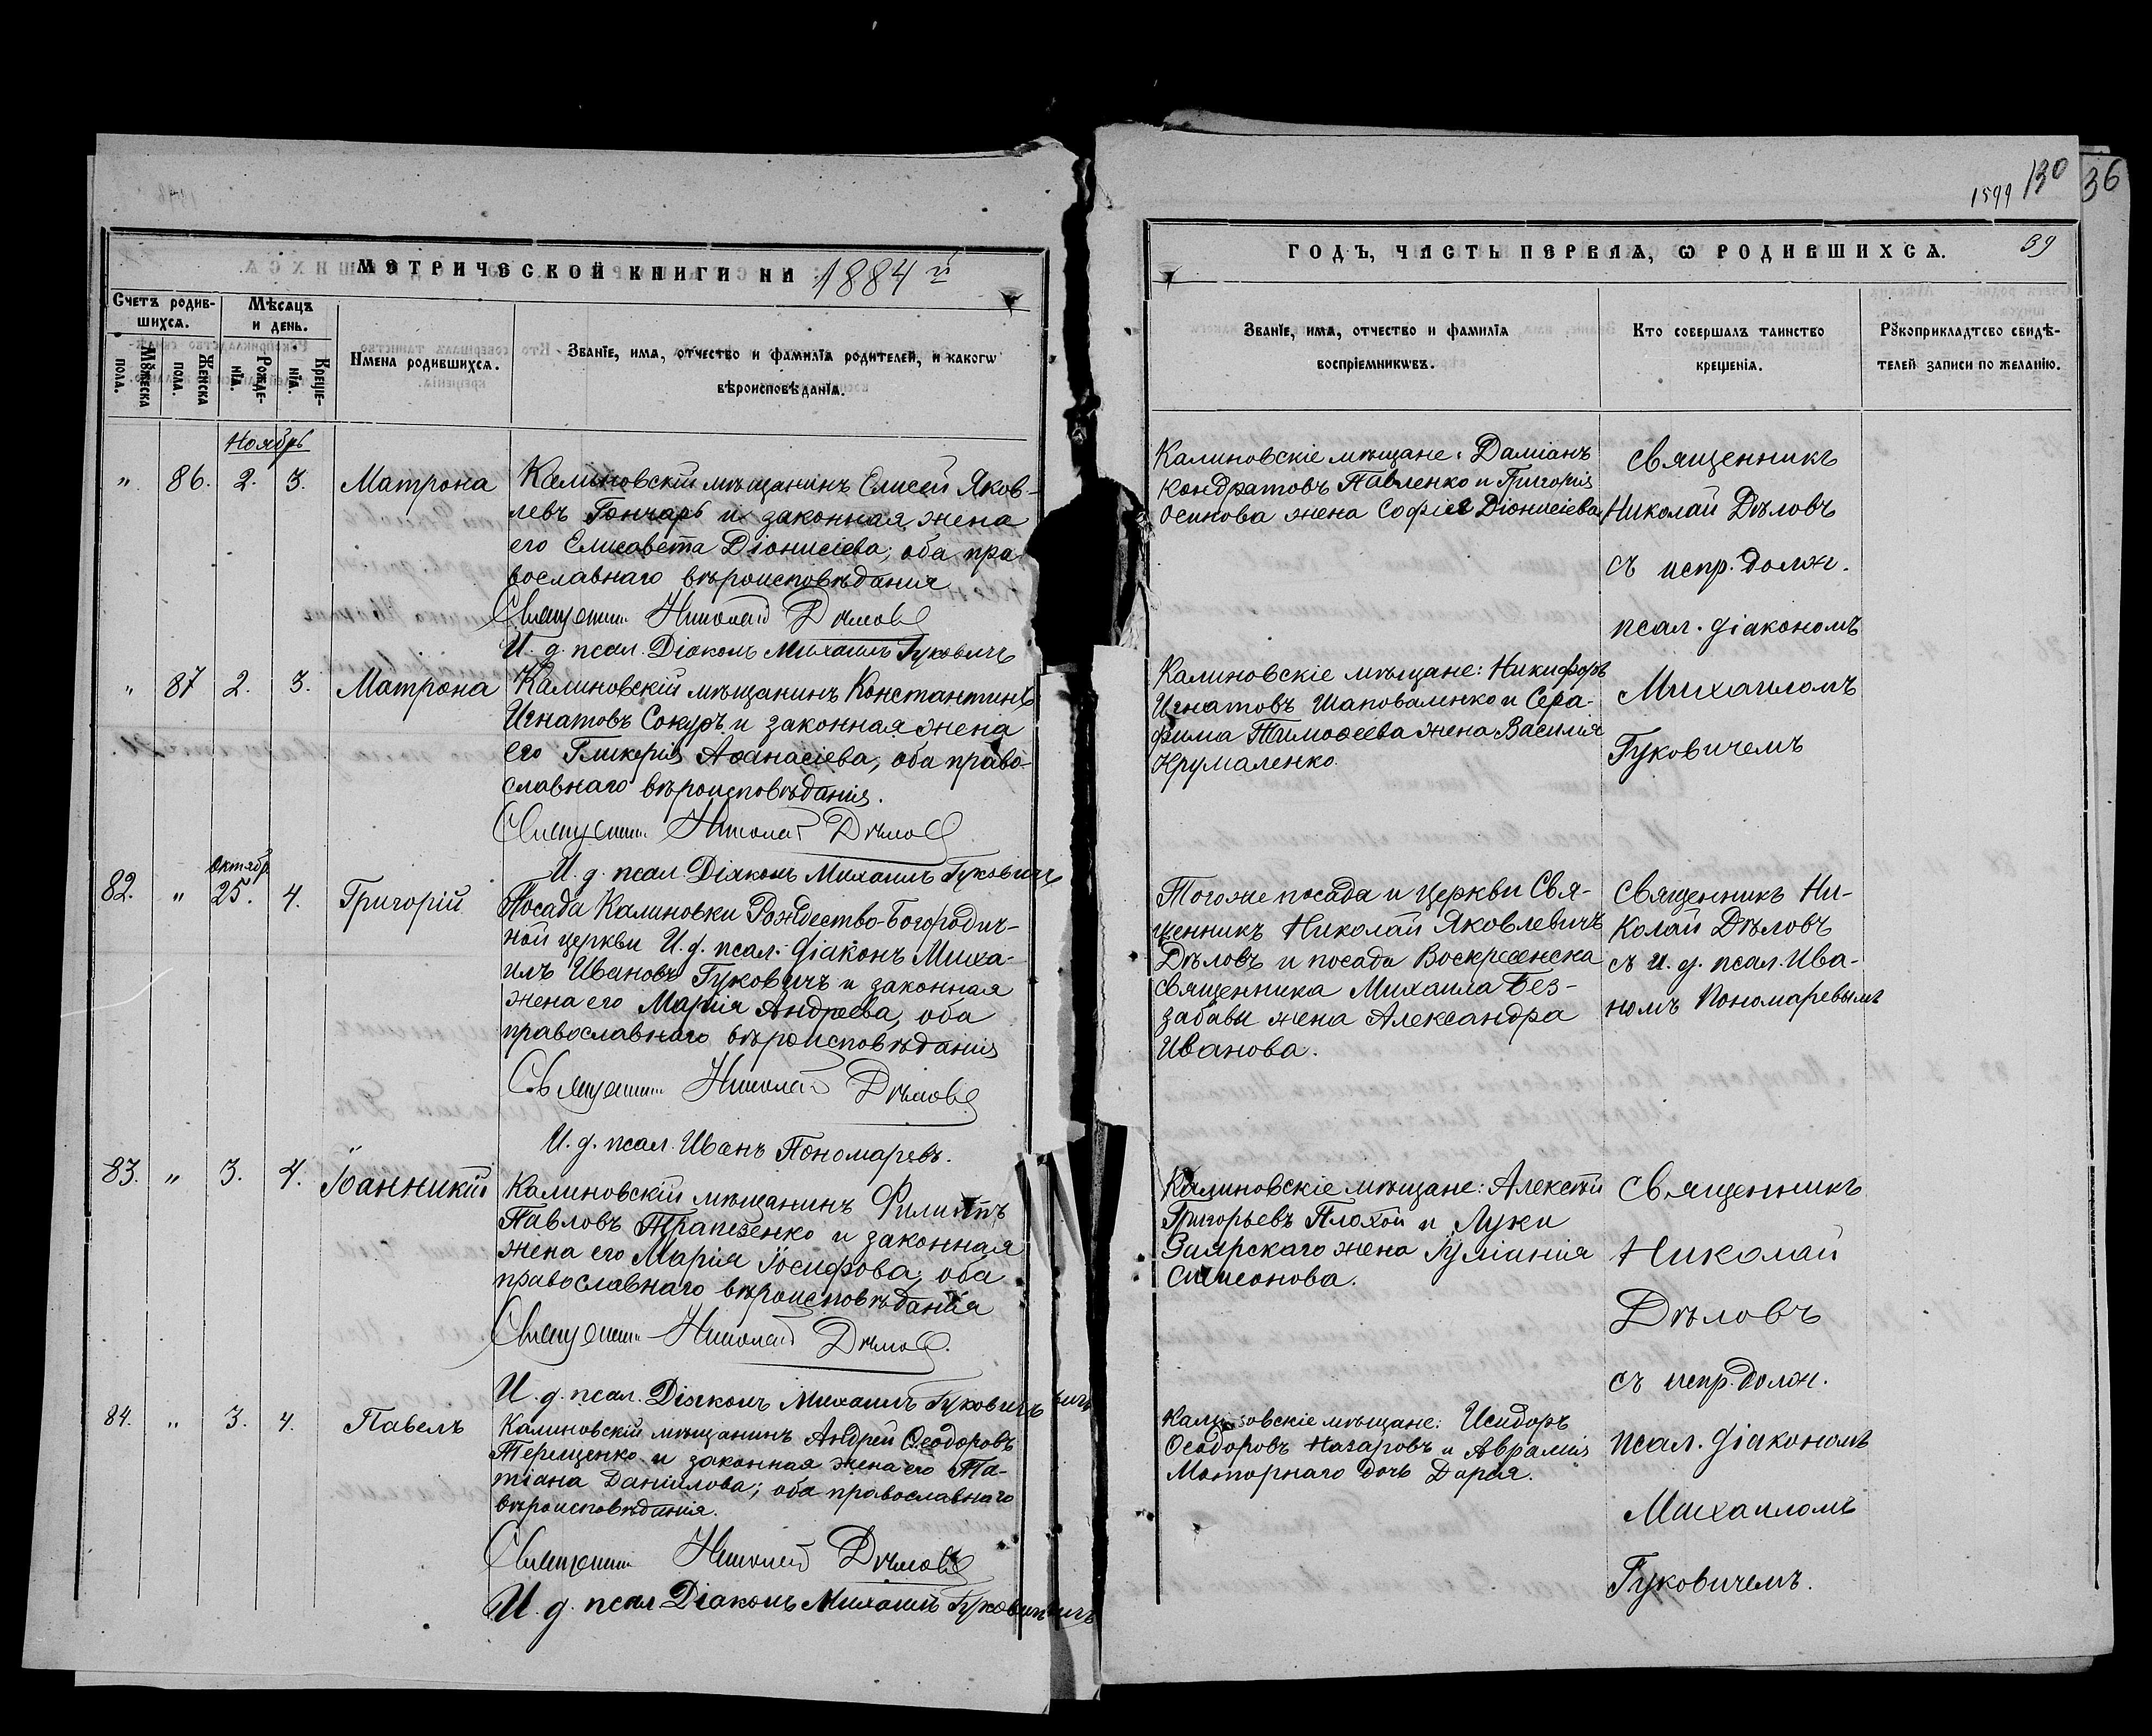 1599 130 36
МЕТРИЧЕСКОЙ КНИГИ НА 1884 й
ГОДЪ, ЧАСТЬ ПЕРВАЯ, Ѡ РОДИВШИХСѦ. 39
Счетъ родив-
шихсѧ.
Мѣсѧцъ
и день.
Мꙋжеска
пола.
Женска
пола.
Рожде-
нїѧ.
Креще-
нїѧ.
Имена родившихсѧ.
Званїе, имѧ, отчество и фамилїѧ родителей, и какогѡ
вѣроисповѣданїѧ.
Званїе, имѧ, отчество и фамилїѧ
воспрїемникѡвъ.
Кто совершалъ таинство
крещенїѧ.
Рꙋкоприкладтсво свидѣ-
телей записи по желанїю.
Ноябрь
" 86. 2. 3. Матрона
Калиновскій мѣщанинъ Елисей Яков-
левъ Гончаръ и законная жена
его Елисавета Діонисіева; оба пра-
вославнаго вѣроисповѣданія
Священникъ Николай Дѣловъ
И. д. псал. Діаконъ Михаилъ Гуковичъ
Калиновскіе мѣщане: Даміанъ
Кондратовъ Павленко и Григорія
Осипова жена Софія Діонисіева
Священникъ
Николай Дѣловъ
съ испр. долж.
псал. діакономъ
Михаиломъ
Гуковичемъ
" 87 2. 3. Матрона
Калиновскій мѣщанинъ Константинъ
Игнатовъ Сокуръ и законная жена
его Гликерія Аѳанасіева; оба право-
славнаго вѣроисповѣданія.
Священникъ Николай Дѣловъ
И. д. псал. Діяконъ Михаилъ Гуковичъ
Калиновскіе мѣщане: Никифоръ
Игнатовъ Шаповаленко и Сера-
фима Тимоѳеева жена Василія
Крумаленко.
Октябр.
82. " 25. 4. Григорій
Посада Калиновки Рождество-Богородич-
ной церкви И. д. псал. діаконъ Миха-
илъ Ивановъ Гуковичъ и законная
жена его Марія Андреева, оба
православнаго вѣроисповѣданія
Священникъ Николай Дѣловъ
И. д. псал. Иванъ Пономаревъ.
Тогоже посада и церкви Свя-
щенникъ Николай Яковлевичъ
Дѣловъ и посада Воскресенска
священника Михаила Без-
забавы жена Александра
Иванова.
Священникъ Ни-
колай Дѣловъ
съ и. д. псал. Ива-
номъ Пономаревымъ
83. " 3. 4. Іоанникій
Калиновскій мѣщанинъ Филиппъ
Павловъ Трапезенко и законная
жена его Марія Іосифова; оба
православнаго вѣроисповѣданія
Священникъ Николай Дѣловъ.
И. д. псал. Діяконъ Михаилъ Гуковичъ
Калиновскіе мѣщане: Алексѣй
Григорьевъ Плохой и Луки
Заярскаго жена Іуліанія
Симеонова.
Священникъ
Николай
Дѣловъ
съ испр. долж.
псал. діакономъ
Михаиломъ
Гуковичемъ.
84. " 3. 4. Павелъ
Калиновскій мѣщанинъ Андрей Ѳеодоровъ
Терещенко и законная жена его Та-
тіана Даніилова; оба православнаго
вѣроисповѣданія.
Священникъ Николай Дѣловъ
И. д. псал Діаконъ Михаилъ Гуковичъ
Калиновскіе мѣщане: Исидоръ
Ѳеодоровъ Назаровъ и Аврамія
Моторнаго дочь Дарія.